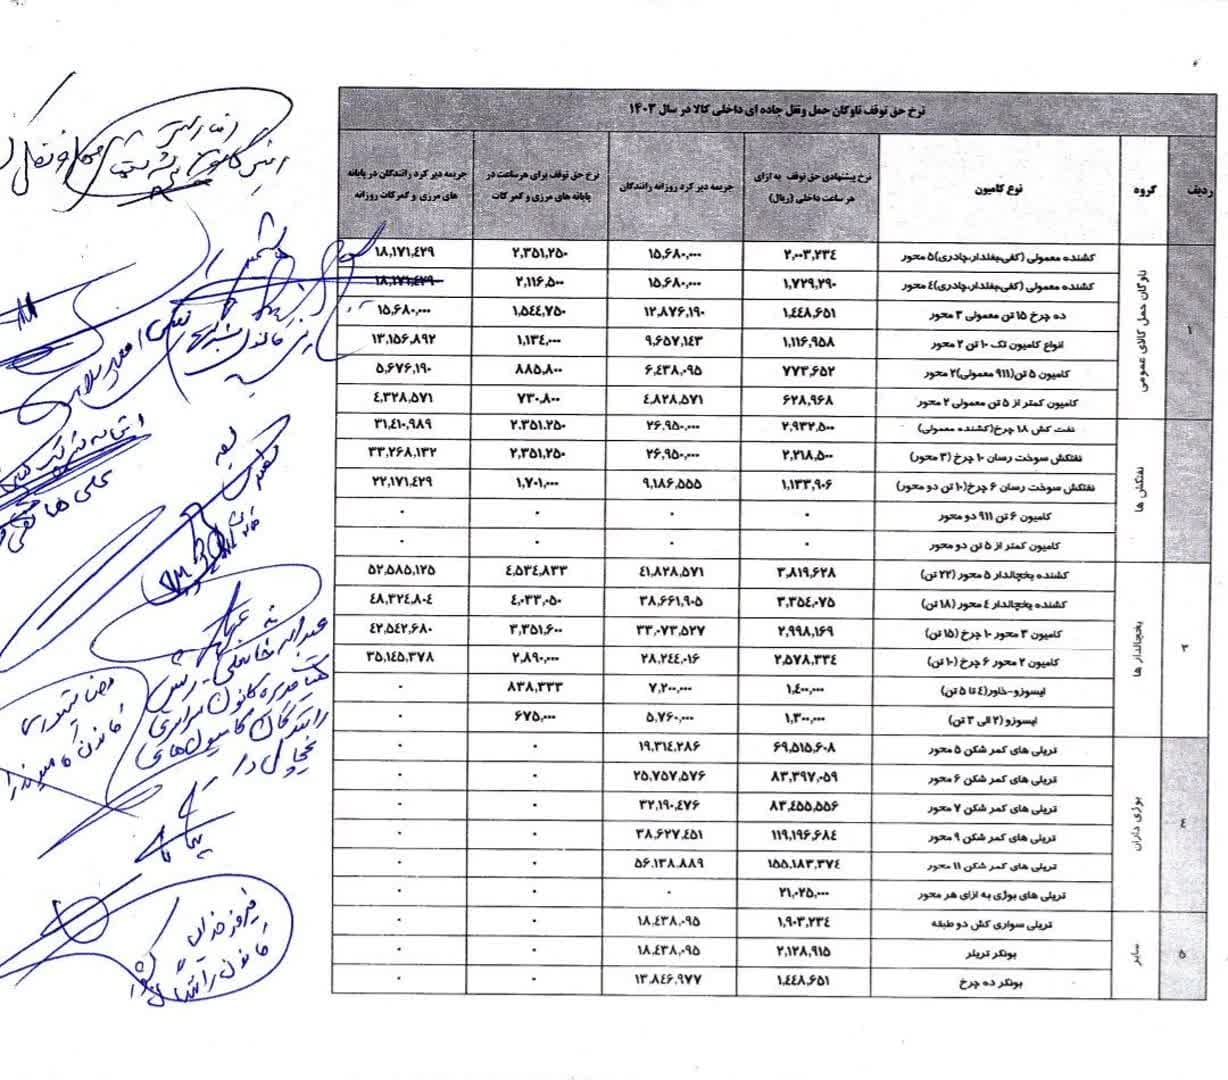 نرخ حق توقف ناوگان حمل ونقل جاده ای داخلی کالا در سال ۱۴۰۳
ردیف گروه نوع کامیون نرخ پیشنهادی حق توقف به ازای هر ساعت داخلی (ریال) جریمه دیر کرد روزانه رانندگان نرخ حق توقف برای هر ساعت در پایانه های مرزی و گمرکات جریمه دیر کرد رانندگان در پایانه های مرزی و گمرکات روزانه
۱ ناوگان حمل کالای عمومی
کشنده معمولی (کفی،بغلدار،چادری)۵ محور ۲,۰۰۳,۲۳۴ ۱۵,۶۸۰,۰۰۰ ۲,۳۵۱,۲۵۰ ۱۸,۱۷۱,۴۲۹
کشنده معمولی (کفی،بغلدار،چادری)۴ محور ۱,۷۲۹,۲۹۰ ۱۵,۶۸۰,۰۰۰ ۲,۱۱۶,۵۰۰ ۱۸,۱۷۱,۴۲۹
ده چرخ ۱۵ تن معمولی ۳ محور ۱,۴۴۸,۶۵۱ ۱۲,۸۷۶,۱۹۰ ۱,۵۴۴,۷۵۰ ۱۵,۶۸۰,۰۰۰
انواع کامیون تک ۱۰ تن ۲ محور ۱,۱۱۶,۹۵۸ ۹,۶۵۷,۱۴۳ ۱,۱۳۴,۰۰۰ ۱۳,۱۵۶,۸۹۲
کامیون ۵ تن(۹۱۱ معمولی)۲ محور ۷۷۳,۶۵۲ ۶,۴۳۸,۰۹۵ ۸۸۵,۸۰۰ ۵,۶۷۶,۱۹۰
کامیون کمتر از ۵ تن معمولی ۲ محور ۶۲۸,۹۶۸ ۴,۸۲۸,۵۷۱ ۷۳۰,۸۰۰ ۴,۳۲۸,۵۷۱
نفتکش ها
نفت کش ۱۸ چرخ(کشنده معمولی) ۲,۹۳۲,۵۰۰ ۲۶,۹۵۰,۰۰۰ ۲,۳۵۱,۲۵۰ ۳۱,۴۱۰,۹۸۹
نفتکش سوخت رسان ۱۰ چرخ (۳ محور) ۲,۲۱۸,۵۰۰ ۲۶,۹۵۰,۰۰۰ ۲,۳۵۱,۲۵۰ ۳۳,۲۶۸,۱۳۲
نفتکش سوخت رسان ۶ چرخ(۱۰ تن دو محور) ۱,۱۳۳,۹۰۶ ۹,۱۸۶,۵۵۵ ۱,۷۰۱,۰۰۰ ۲۲,۱۷۱,۴۲۹
کامیون ۶ تن ۹۱۱ دو محور ۰ ۰ ۰ ۰
کامیون کمتر از ۵ تن دو محور ۰ ۰ ۰ ۰
۳ یخچالدار ها
کشنده یخچالدار ۵ محور (۲۲ تن) ۳,۸۱۹,۶۲۸ ۴۱,۸۲۸,۵۷۱ ۴,۵۳۴,۸۳۳ ۵۲,۵۸۵,۱۲۵
کشنده یخچالدار ۴ محور (۱۸ تن) ۳,۳۵۴,۰۷۵ ۳۸,۶۶۱,۹۰۵ ۴,۰۳۳,۰۵۰ ۴۸,۳۲۴,۸۰۴
کامیون ۳ محور ۱۰ چرخ (۱۵ تن) ۲,۹۹۸,۱۶۹ ۳۳,۰۷۳,۵۲۷ ۳,۳۵۱,۶۰۰ ۴۲,۵۴۲,۶۸۰
کامیون ۲ محور ۶ چرخ (۱۰ تن) ۲,۵۷۸,۳۳۴ ۲۸,۲۴۴,۰۱۶ ۲,۸۹۰,۰۰۰ ۳۵,۱۴۵,۳۷۸
ایسوزو-خاور(۴ تا ۵ تن) ۱,۴۰۰,۰۰۰ ۷,۲۰۰,۰۰۰ ۸۳۸,۳۳۳ ۰
ایسوزو (۲ الی ۳ تن) ۱,۳۰۰,۰۰۰ ۵,۷۶۰,۰۰۰ ۶۷۵,۰۰۰ ۰
۴ بوژی داران
تریلی های کمر شکن ۵ محور ۶۹,۵۱۵,۶۰۸ ۱۹,۳۱۴,۲۸۶ ۰ ۰
تریلی های کمر شکن ۶ محور ۸۳,۳۹۷,۰۵۹ ۲۵,۷۵۷,۵۷۶ ۰ ۰
تریلی های کمر شکن ۷ محور ۸۳,۴۵۵,۵۵۶ ۳۲,۱۹۰,۴۷۶ ۰ ۰
تریلی های کمر شکن ۹ محور ۱۱۹,۱۹۶,۶۸۴ ۳۸,۶۲۷,۴۵۱ ۰ ۰
تریلی های کمر شکن ۱۱ محور ۱۵۵,۱۸۳,۳۷۴ ۵۶,۱۳۸,۸۸۹ ۰ ۰
تریلی های بوژی به ازای هر محور ۲۱,۰۲۵,۰۰۰ ۰ ۰ ۰
۵ سایر
تریلی سواری کش دو طبقه ۱,۹۰۳,۲۳۴ ۱۸,۴۳۸,۰۹۵ ۰ ۰
بونکر تریلر ۲,۱۲۸,۹۱۵ ۱۸,۴۳۸,۰۹۵ ۰ ۰
بونکر ده چرخ ۱,۴۴۸,۶۵۱ ۱۳,۸۴۶,۹۷۷ ۰ ۰
کانون سراسری
رانندگان کامیون های
یخچال دار